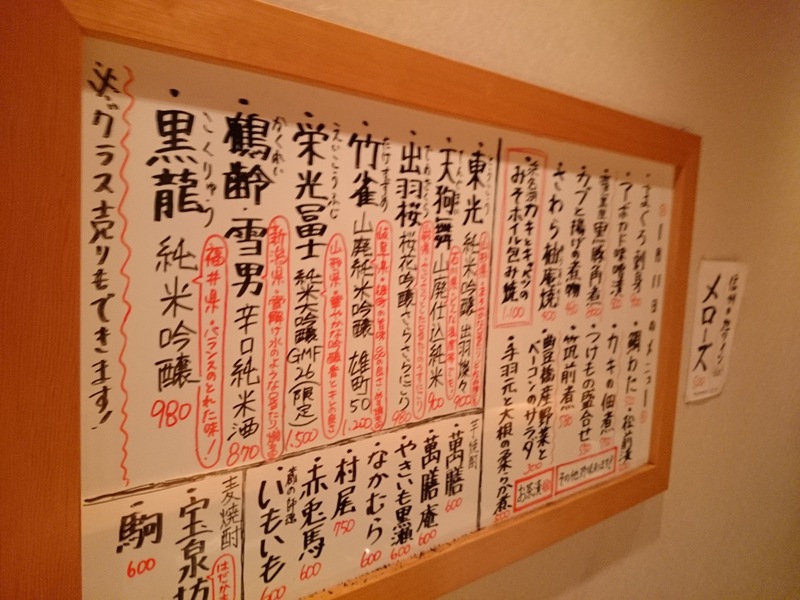 1月11日のメニュー
まぐろ刺身
アボカド味噌漬
黒豚角煮
カブと揚げの煮物
さわら柚庵焼
カキとキャベツの
みそホイル包み焼
1,100
鯛わた・松前漬
カキの佃煮
つけもの盛合せ
筑前煮
伊豆諸産野菜と
ベーコンのサラダ
手羽元と大根の柔らか煮
お茶漬
その他
東光 純米吟醸 出羽燦々
900
天狗舞 山廃仕込純米
900
出羽桜 桜花吟醸さらさらにごり
980
でわざくら
竹雀 山廃純米吟醸 雄町50
たけすずめ
1,200
栄光冨士 純米大吟醸GMF26(限定)
えいこうふじ
山形県・華やかな吟醸香とキレの良さ
1,500
鶴齢・雪男 辛口純米酒
かくれい
870
黒龍 純米吟醸
こくりゅう
福井県・バランスのとれた味!
980
※グラス売りもできます!
芋焼酎
萬膳
600
萬膳庵
600
やきいも黒瀬
600
なかむら
600
村尾
750
赤兎馬
600
蔵の師魂
いもいも
600
麦焼酎
宝泉坊
駒
600
メローズ